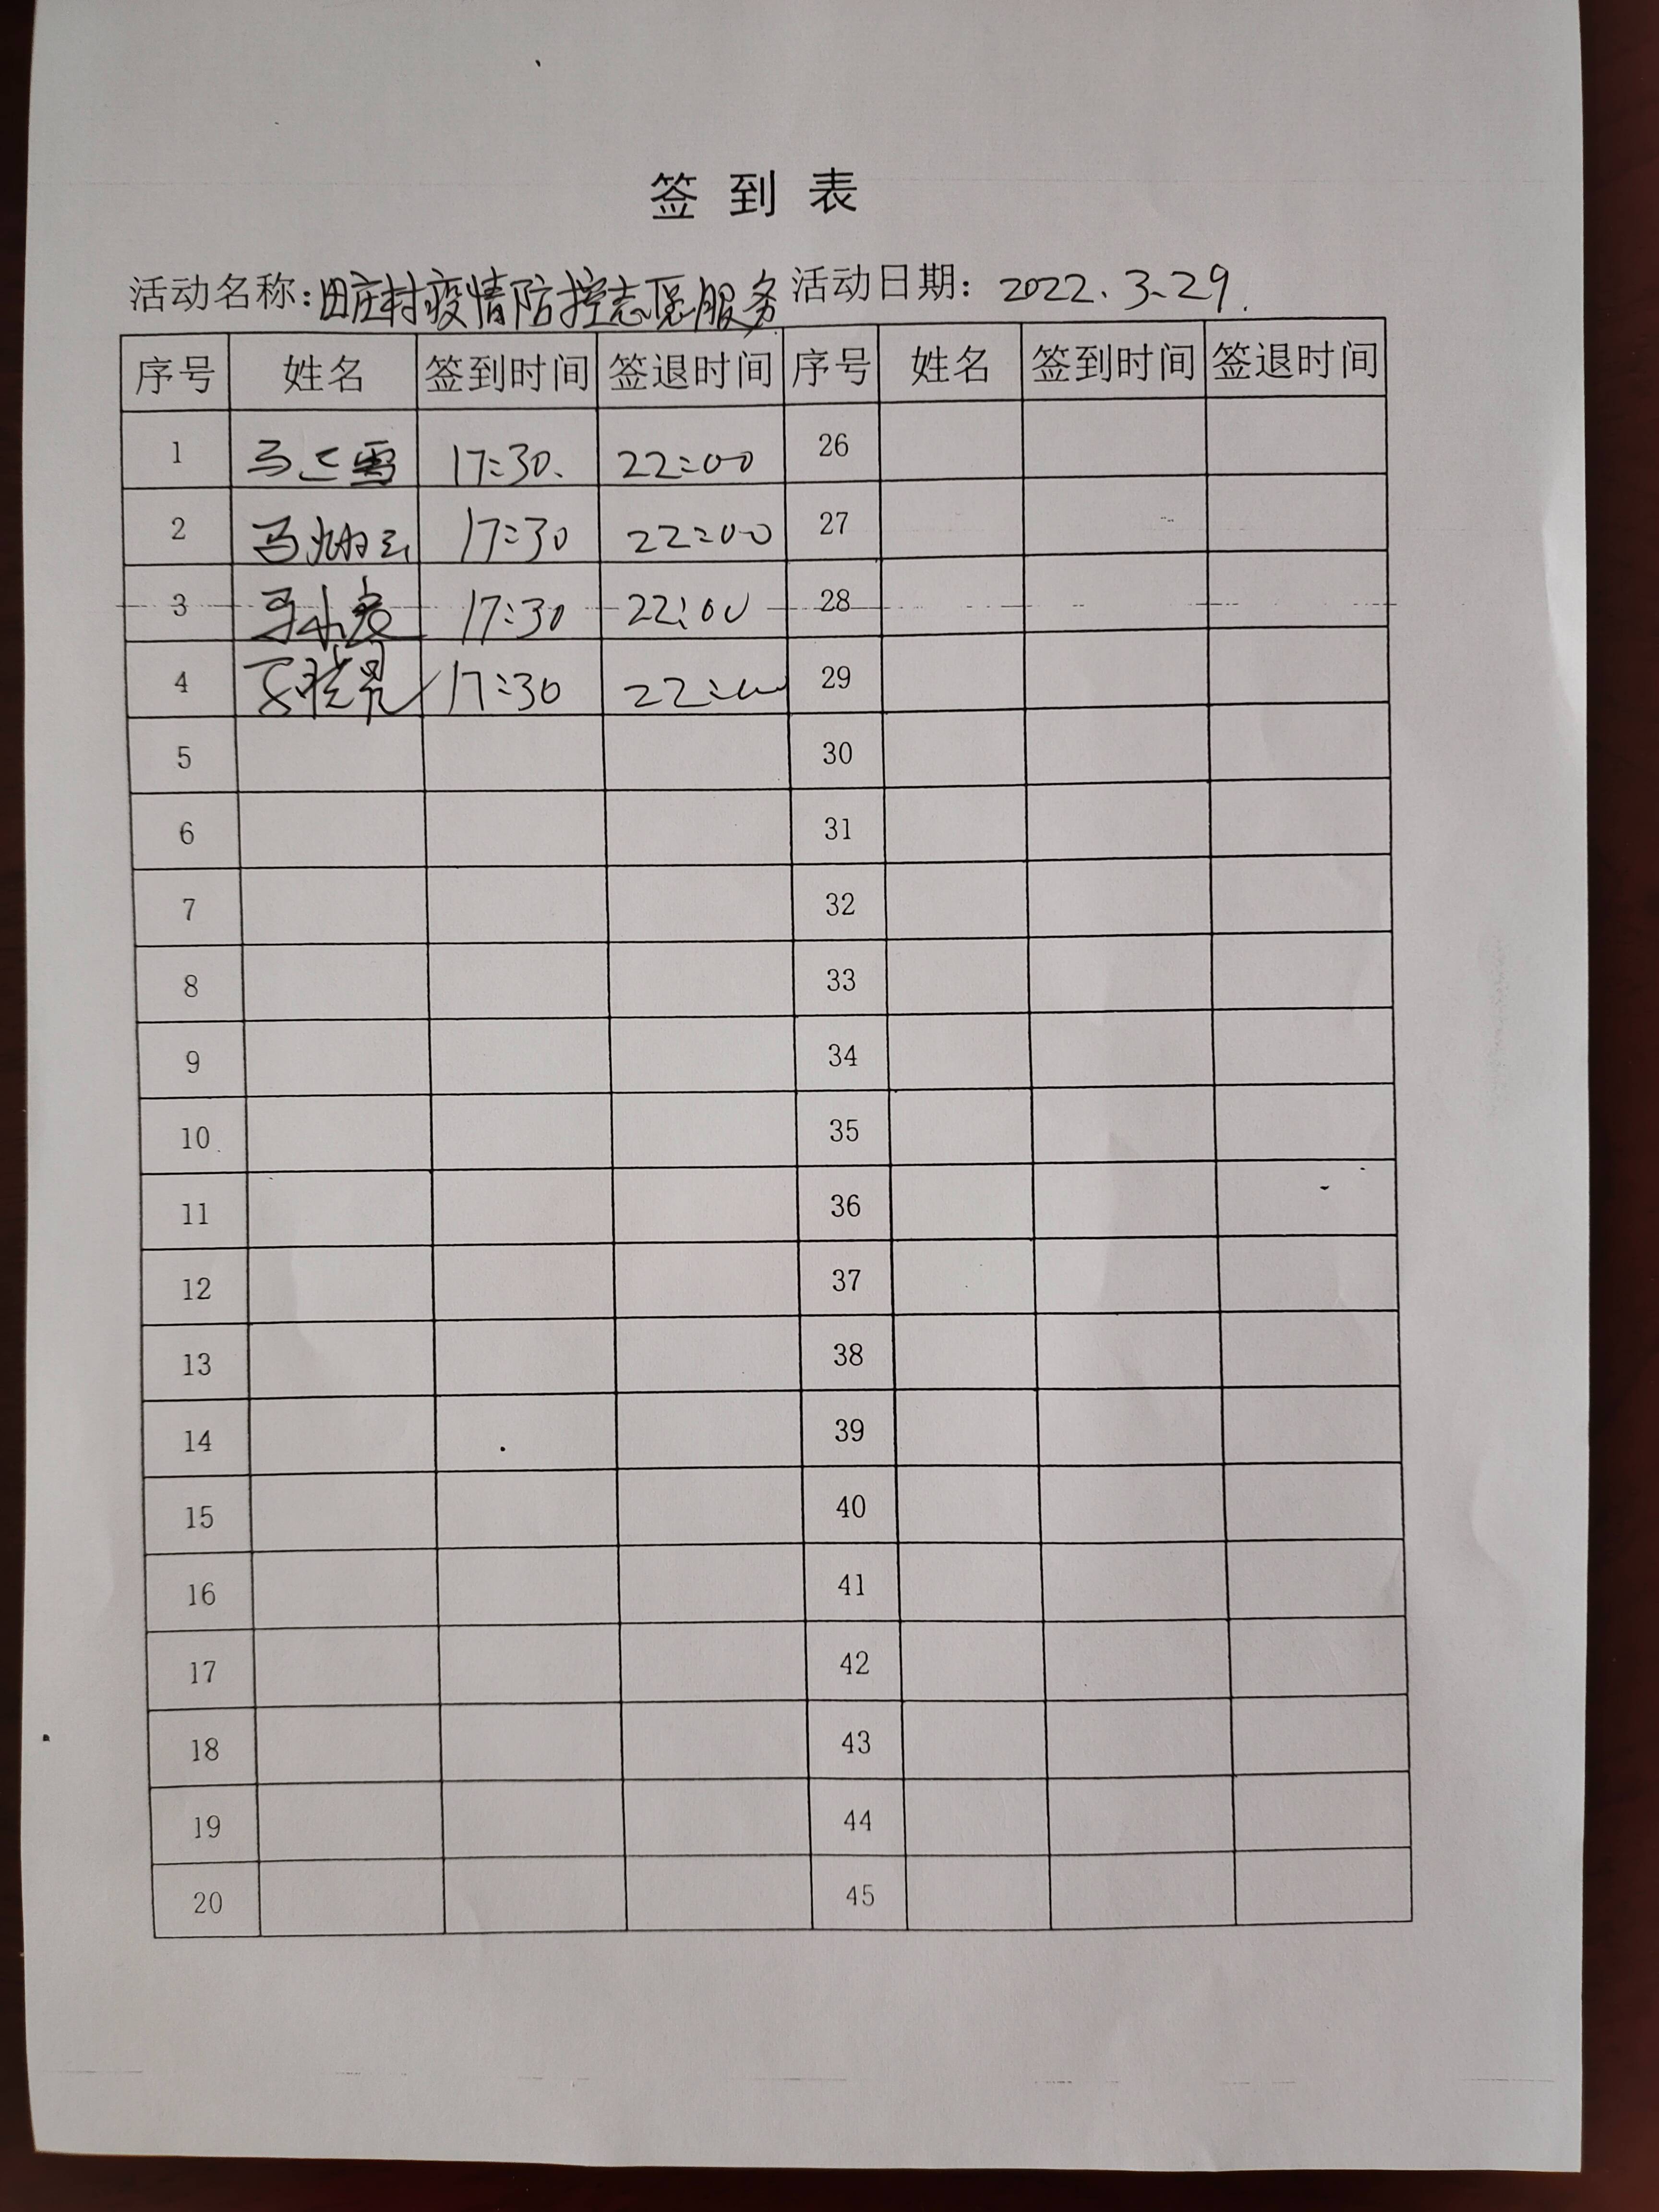 签到表
活动名称:田庄村疫情防控志愿服务 活动日期: 2022.3.29.
序号 姓名 签到时间 签退时间 序号 姓名 签到时间 签退时间
1 马 17:30. 22:00 26
2 马 17:30 22:00 27
3 17:30 22:00 28
4 17:30 22:00 29
5 30
6 31
7 32
8 33
9 34
10 35
11 36
12 37
13 38
14 39
15 40
16 41
17 42
18 43
19 44
20 45